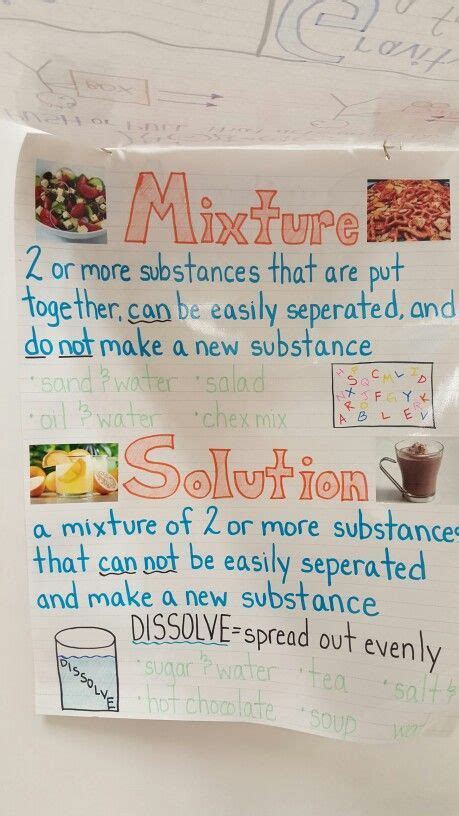 BOX
PUSH or PULL
Mixture
2 or more substances that are put
together, can be easily seperated, and
do not make a new substance
• sand & water • salad
• oil & water • chex mix
Solution
a mixture of 2 or more substances
that can not be easily seperated
and make a new substance
DISSOLVE = spread out evenly
DISSOLVE
• sugar & water • tea • salt &
• hot chocolate • soup